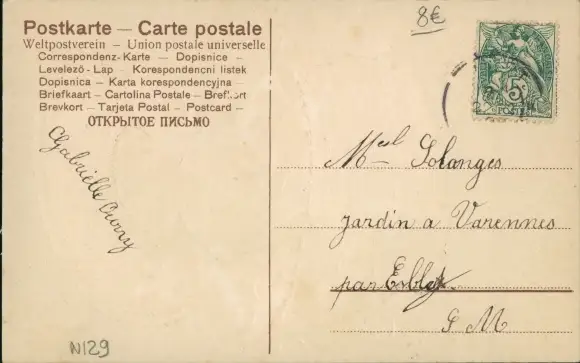 8€
Postkarte — Carte postale
Weltpostverein — Union postale universelle
Correspondenz-Karte — Dopisnice —
Levelező-Lap — Korespondencni listek
Dopisnica — Karta korespondencyjna —
Briefkaart — Cartolina Postale — Brefkort
Brevkort — Tarjeta Postal — Postcard —
ОТКРЫТОЕ ПИСЬМО
Gabrielle
5
POSTES
Melle Solanges
jardin a Varennes
par
S M
N129